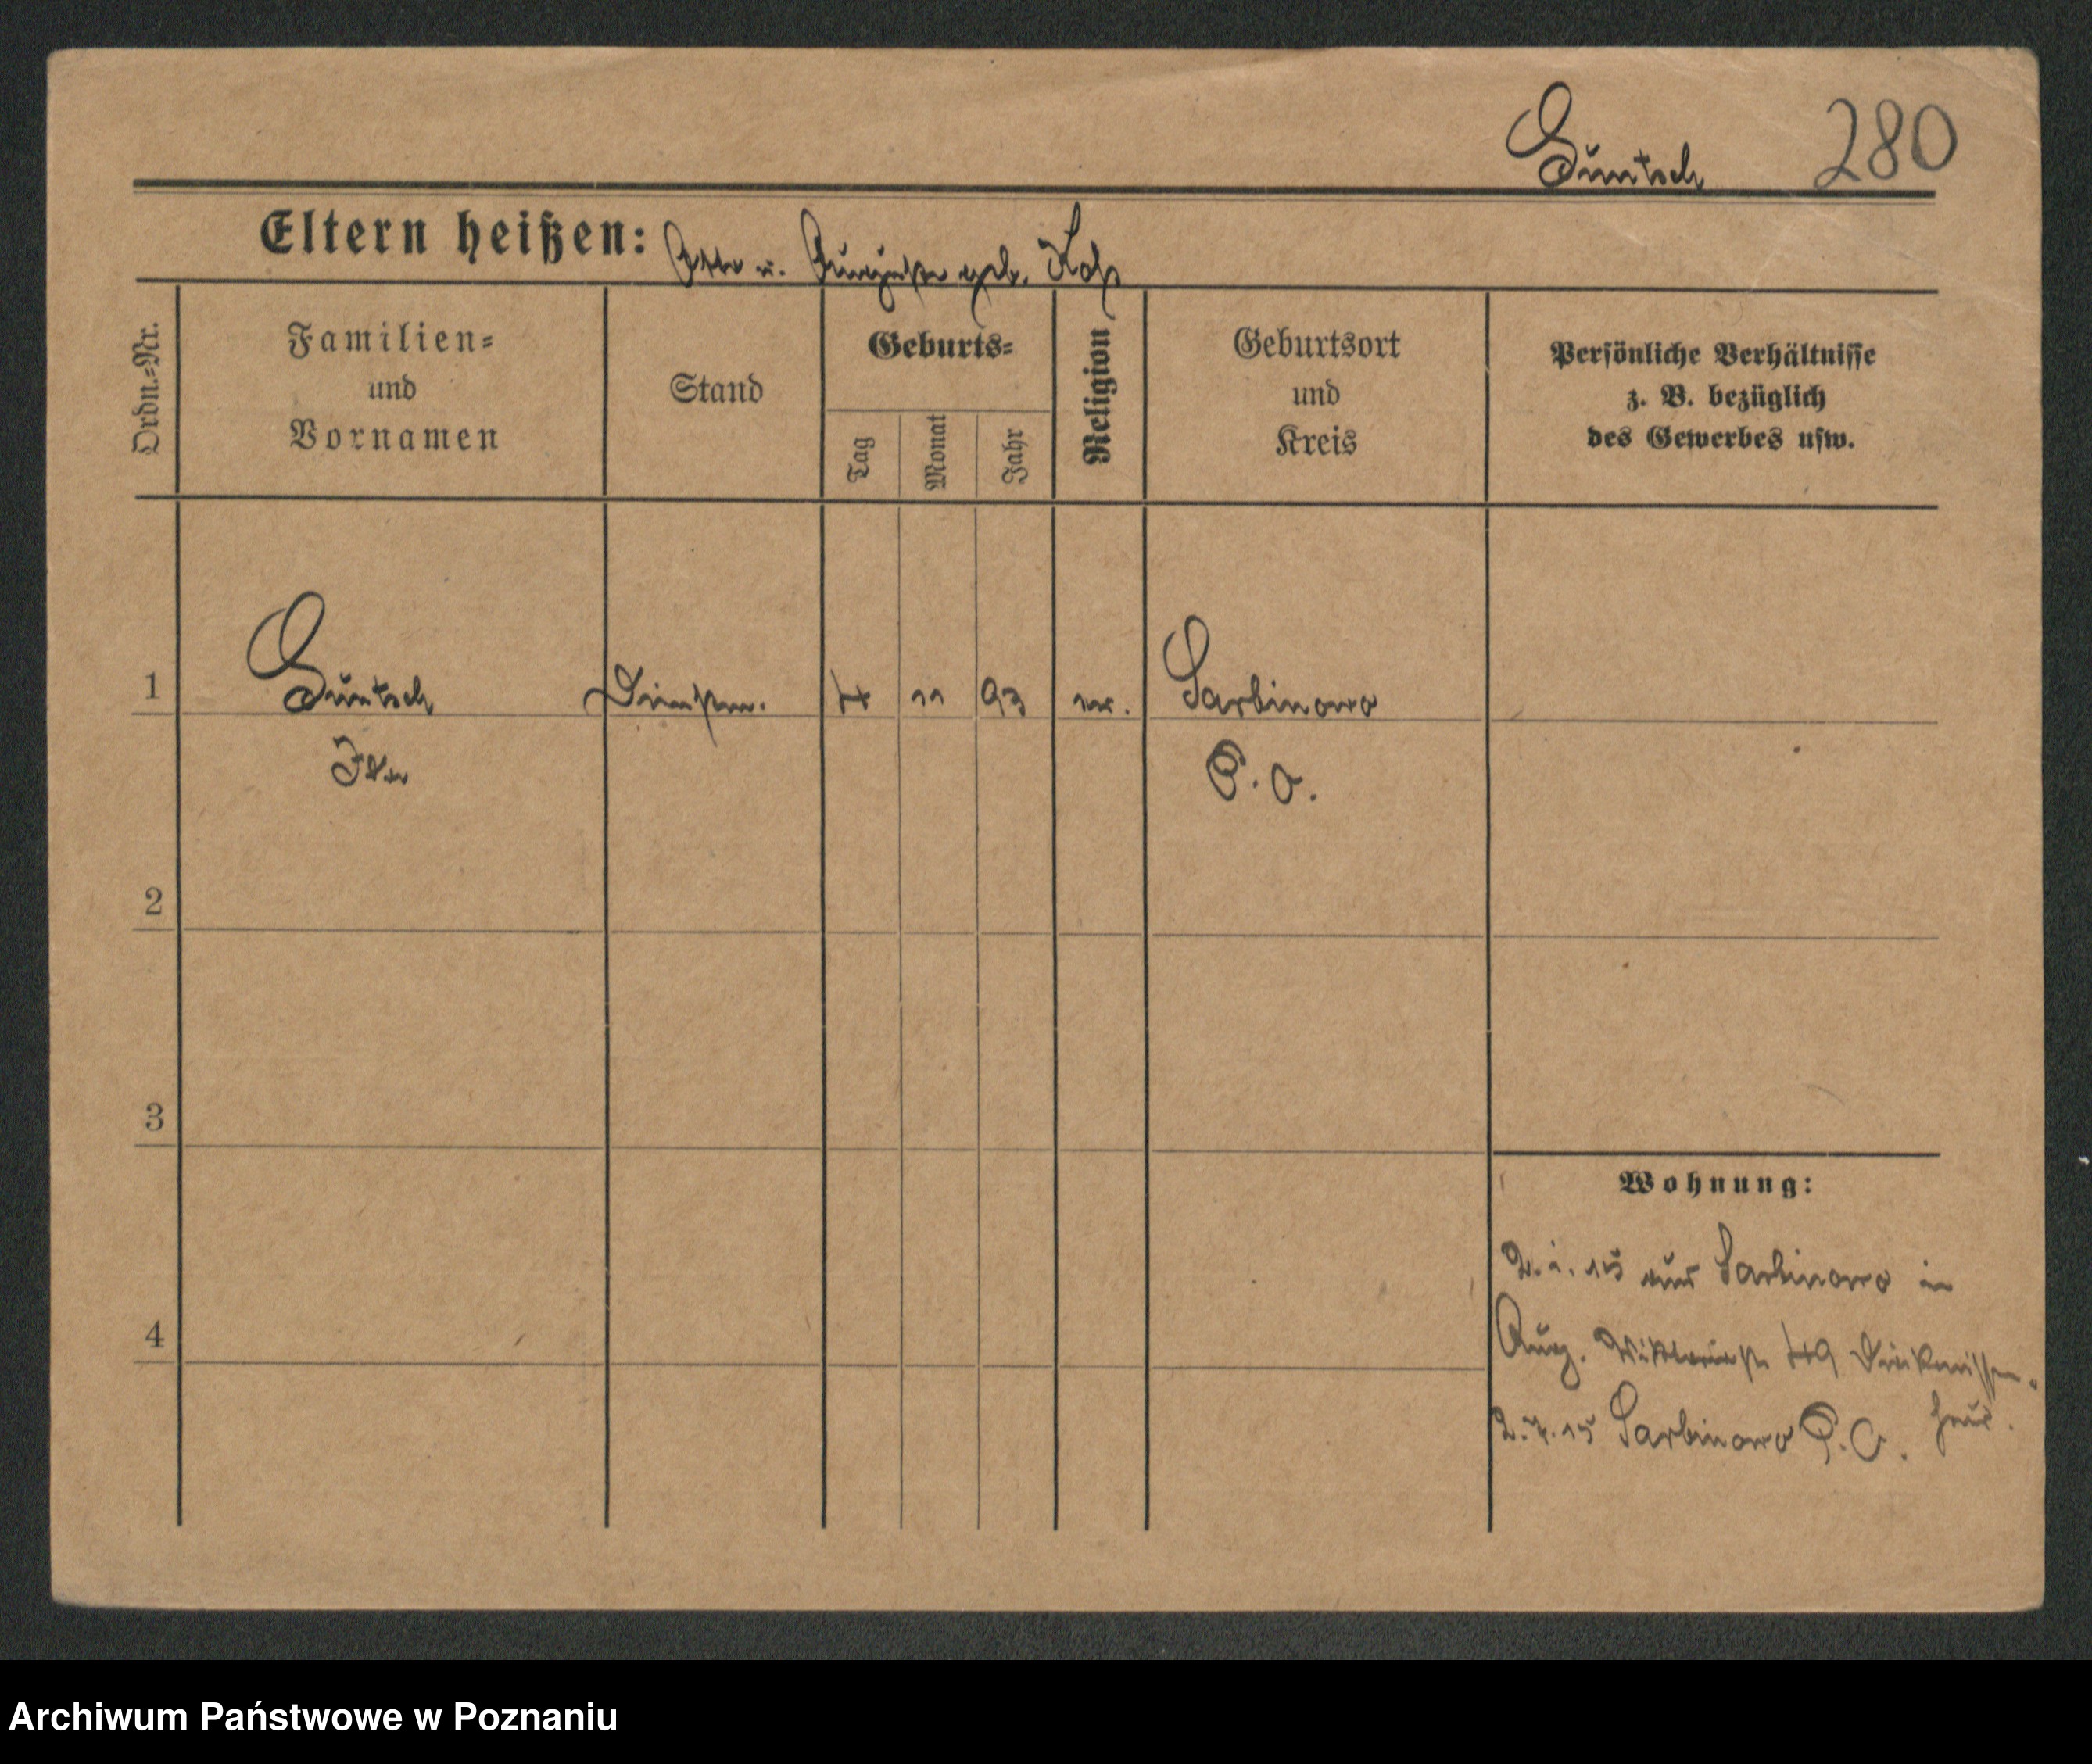 Guntsch 280
Eltern heißen: Otto u. Auguste geb. Koß
Ordn.-Nr.
Familien-
und
Vornamen
Stand
Geburts-
Tag
Monat
Jahr
Religion
Geburtsort
und
Kreis
Persönliche Verhältnisse
z. B. bezüglich
des Gewerbes usw.
1 Guntsch 11 93 ev. Sarbinowo
P. O.
2
3
Wohnung:
2. 1. 15 aus Sarbinowo in
4
Aug. Viktoriastr
2. 7. 15 Sarbinowo P. O. haus.
Archiwum Państwowe w Poznaniu